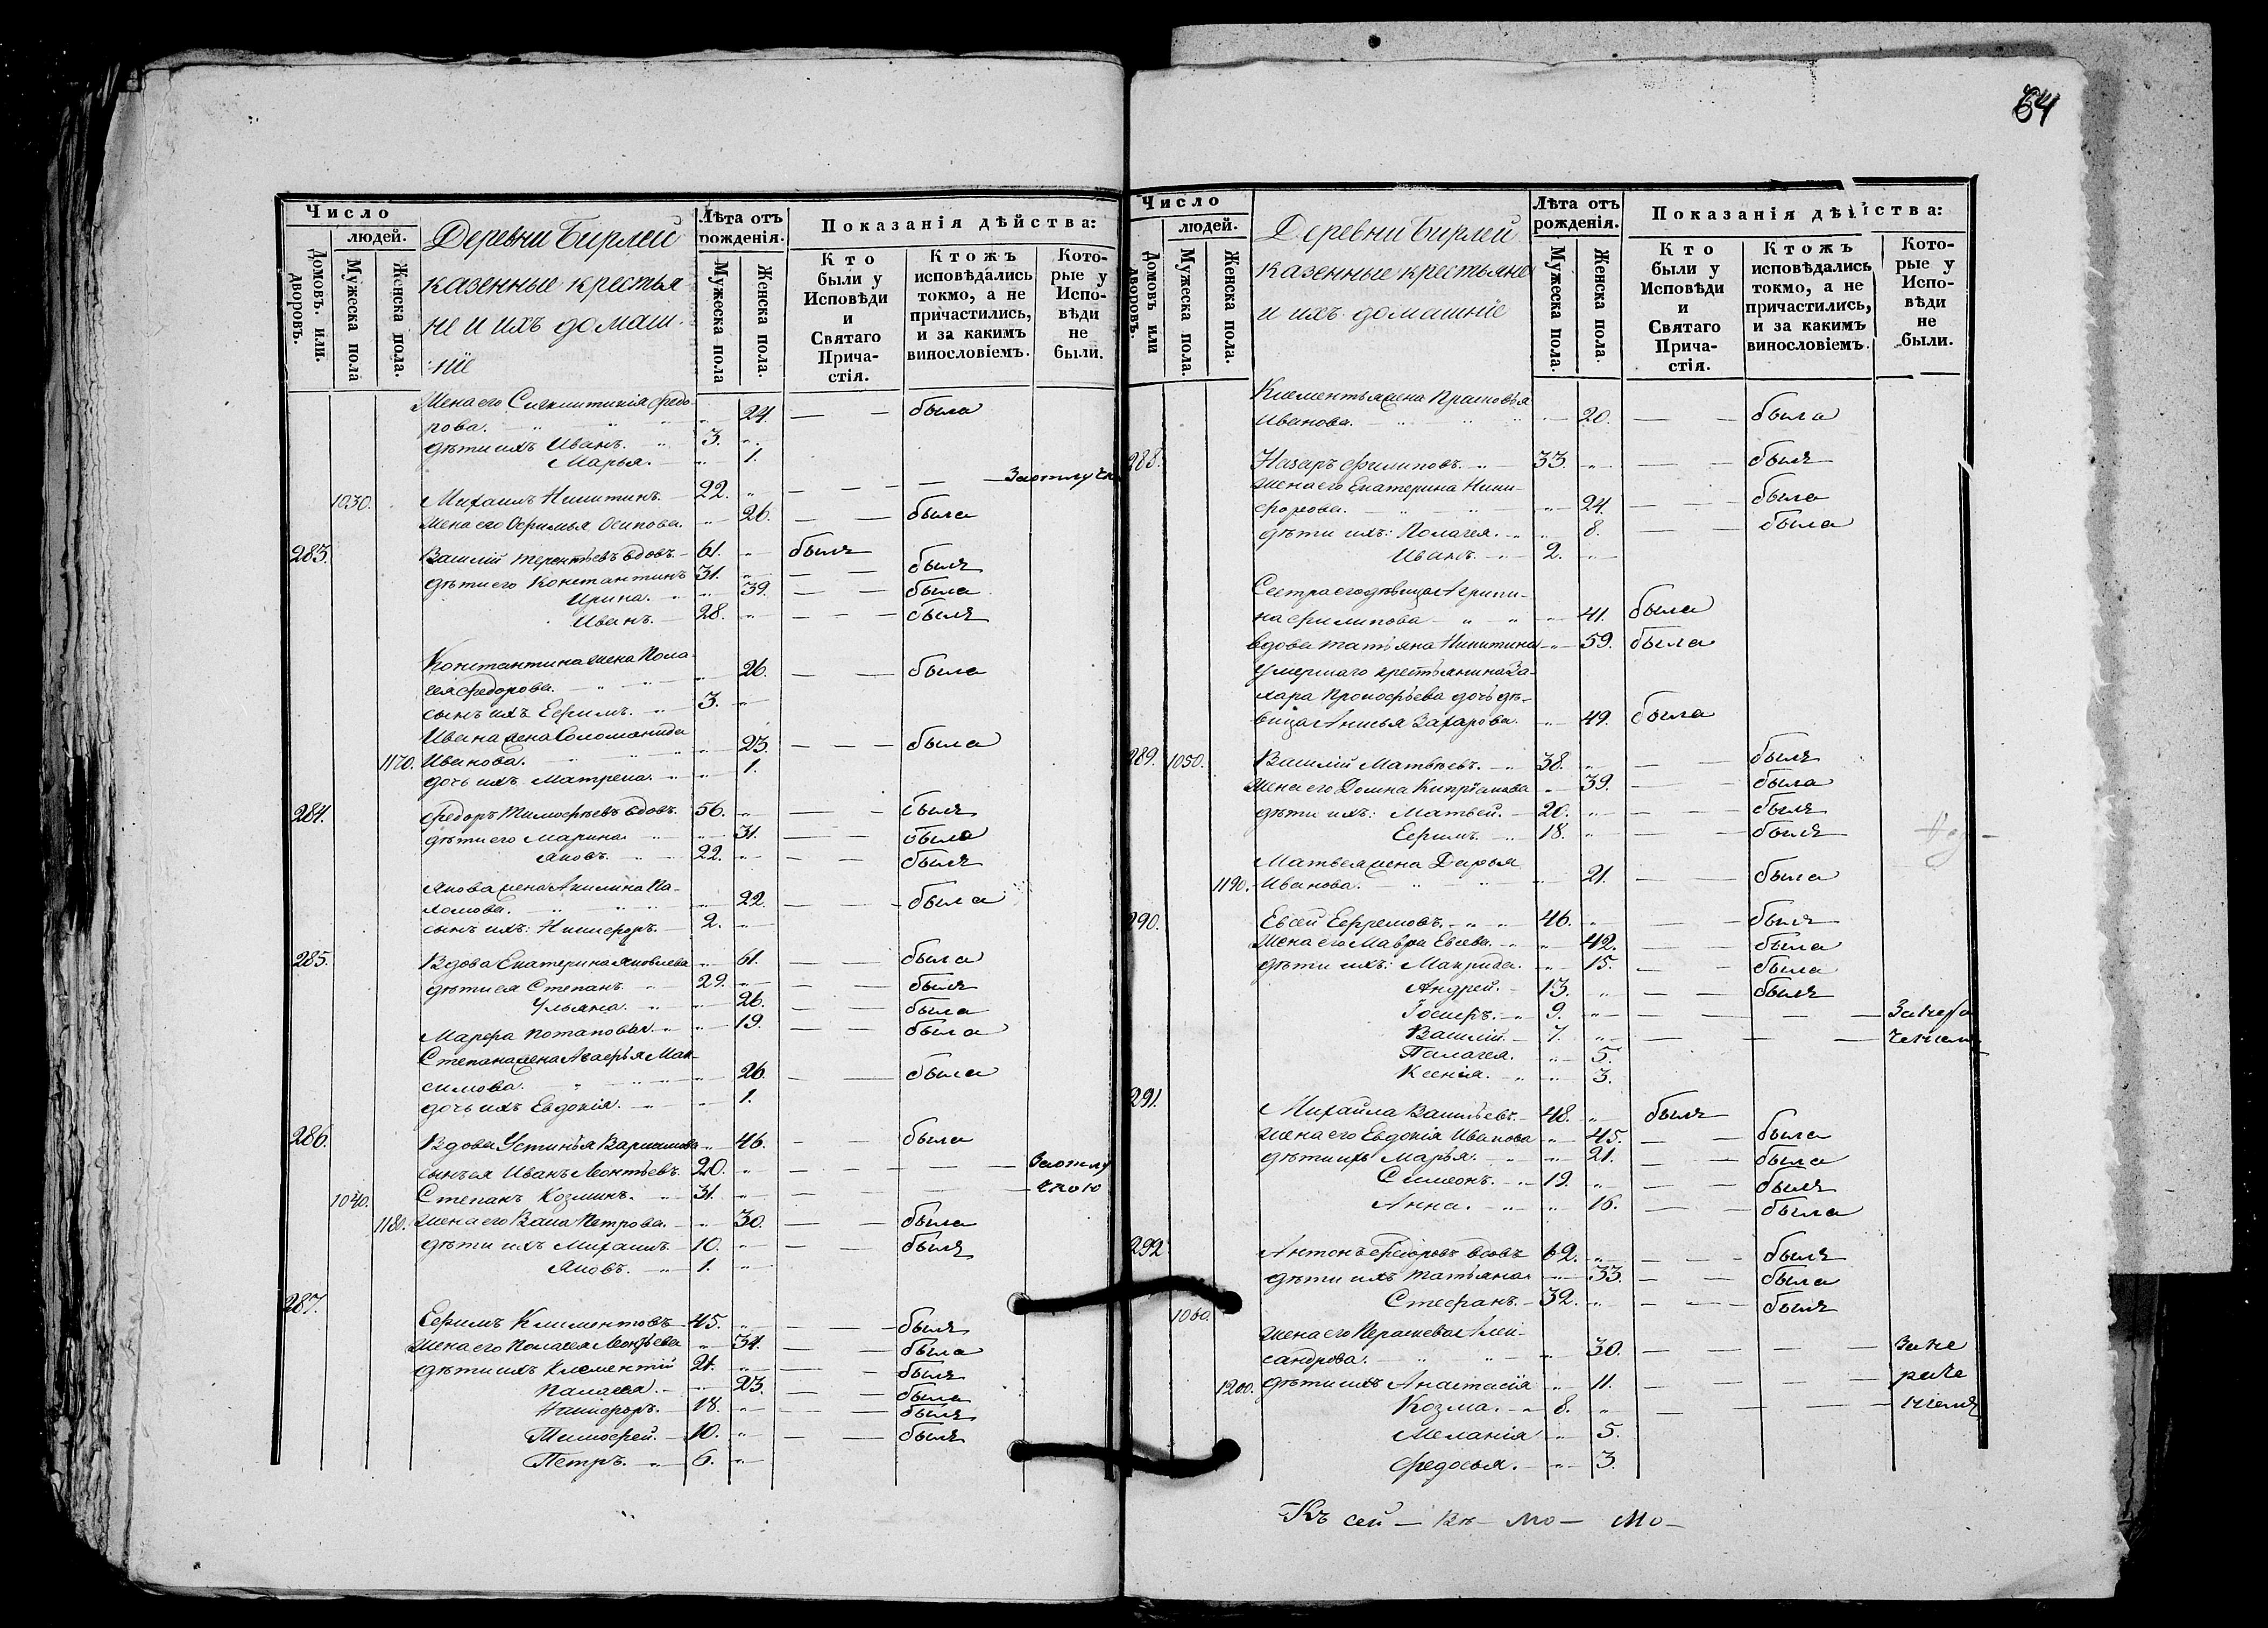 64
Число
людей.
Домовъ. или.
дворовъ.
Мужеска пола
Женска пола.
Деревни Бирлеи
казенные крестья
не и ихъ домаш-
ніе
Лѣта отъ
рожденія.
Мужеска пола
Женска пола.
Показанія дѣйства:
Кто
были у
Исповѣди
и
Святаго
Прича-
стія.
Ктожъ
исповѣдались
токмо, а не
причастились,
и за какимъ
винословіемъ.
Кото-
рые у
Испо-
вѣди
не
были.
Жена его Синклитикія Федо-
рова. 24. была
дѣти ихъ Иванъ. 3.
Марья. 1.
1030. Михаилъ Никитинъ. 22. За отлуч
жена его Офимья Осипова. 26. была
283. Василій Терентьевъ вдовъ. 61. былъ
дѣти его Константинъ 31. былъ
Ирина. 39. была
Иванъ. 28. былъ
Константина жена Пела-
гея Федорова. 26. была
сынъ ихъ Ефимъ. 3.
Ивана жена Соломанида
1170. Иванова. 23. была
дочь ихъ Матрена. 1.
284. Федоръ Тимофеевъ вдовъ. 56. былъ
дѣти его Марина 31. была
Яковъ. 22. былъ
Якова жена Акилина Па-
хомова. 22. была
сынъ ихъ: Никифоръ. 2.
285. Вдова Екатерина Яковлева 61. была
дѣти ея Степанъ. 29. былъ
Ульяна. 26. была
Марфа Потаповая. 19. была
Степана жена Агафья Мак-
симова. 26. была
дочь ихъ Евдокія. 1.
286. Вдова Устинья Варламова 46. была
сынъ ея Иванъ Леонтьевъ. 20. За отлу
1040. Степанъ Козминъ. 31. чкою
1180. жена его Васса Петрова. 30. была
дѣти ихъ Михаилъ. 10. былъ
Яковъ. 1.
287. Ефимъ Климентовъ 45. былъ
жена его Пелагея Леонтьева 34. была
дѣти ихъ Клементій 21. былъ
Палагея. 23. была
Никифоръ. 18. былъ
Тимофей. 10. былъ
Петръ. 6.
Число
людей.
Домовъ или
дворовъ.
Мужеска пола.
Женска пола.
Деревни Бирлеи
казенные крестьяне
и ихъ домашніе
Лѣта отъ
рожденія.
Мужеска пола.
Женска пола.
Показанія дѣйства:
Кто
были у
Исповѣди
и
Святаго
Прича-
стія.
Ктожъ
исповѣдались
токмо, а не
причастились,
и за какимъ
винословіемъ.
Кото-
рые у
Испо-
вѣди
не
были.
Климентья жена Прасковья
Иванова. 20. была
288. Назаръ Филиповъ. 33. былъ
жена его Екатерина Ники-
форова. 24. была
дѣти ихъ: Пелагея. 8. была
Иванъ. 2.
Сестра его дѣвица Агрипи-
на Филипова 41. была
вдова Татьяна Никитина 59. была
Умершаго крестьянина За-
хара Прокофьева дочь дѣ-
вица Анисья Захарова. 49. была
289. 1050. Василій Матвеевъ. 38. былъ
жена его Домна Кипріанова 39. была
дѣти ихъ: Матвей. 20. былъ
Ефимъ. 18. былъ
Матвея жена Дарья
1190. Иванова. 21. была
290. Евсей Ефремовъ. 46. былъ
жена его Мавра Евсева. 42. была
дѣти ихъ: Макрида. 15. была
Андрей. 13. былъ
Іосифъ. 9. За нера
Василій. 7. ченіем
Палагея. 5.
Ксенія. 3.
291. Михайла Васильевъ. 48. былъ
жена его Евдокія Иванова 45. была
дѣти ихъ Марья. 21. была
Симеонъ. 19. былъ
Анна. 16. была
292. Антонъ Федоровъ вдовъ 62. былъ
дѣти ихъ Татьяна 33. была
1060. Стефанъ. 32. былъ
жена его Параскева Алек-
сандрова. 30. За не
1200. дѣти ихъ Анастасія 11. раче
Козма. 8. ніемъ
Меланія 5.
Федосья. 3.
Къ сей — Въ — Мо — Мо —